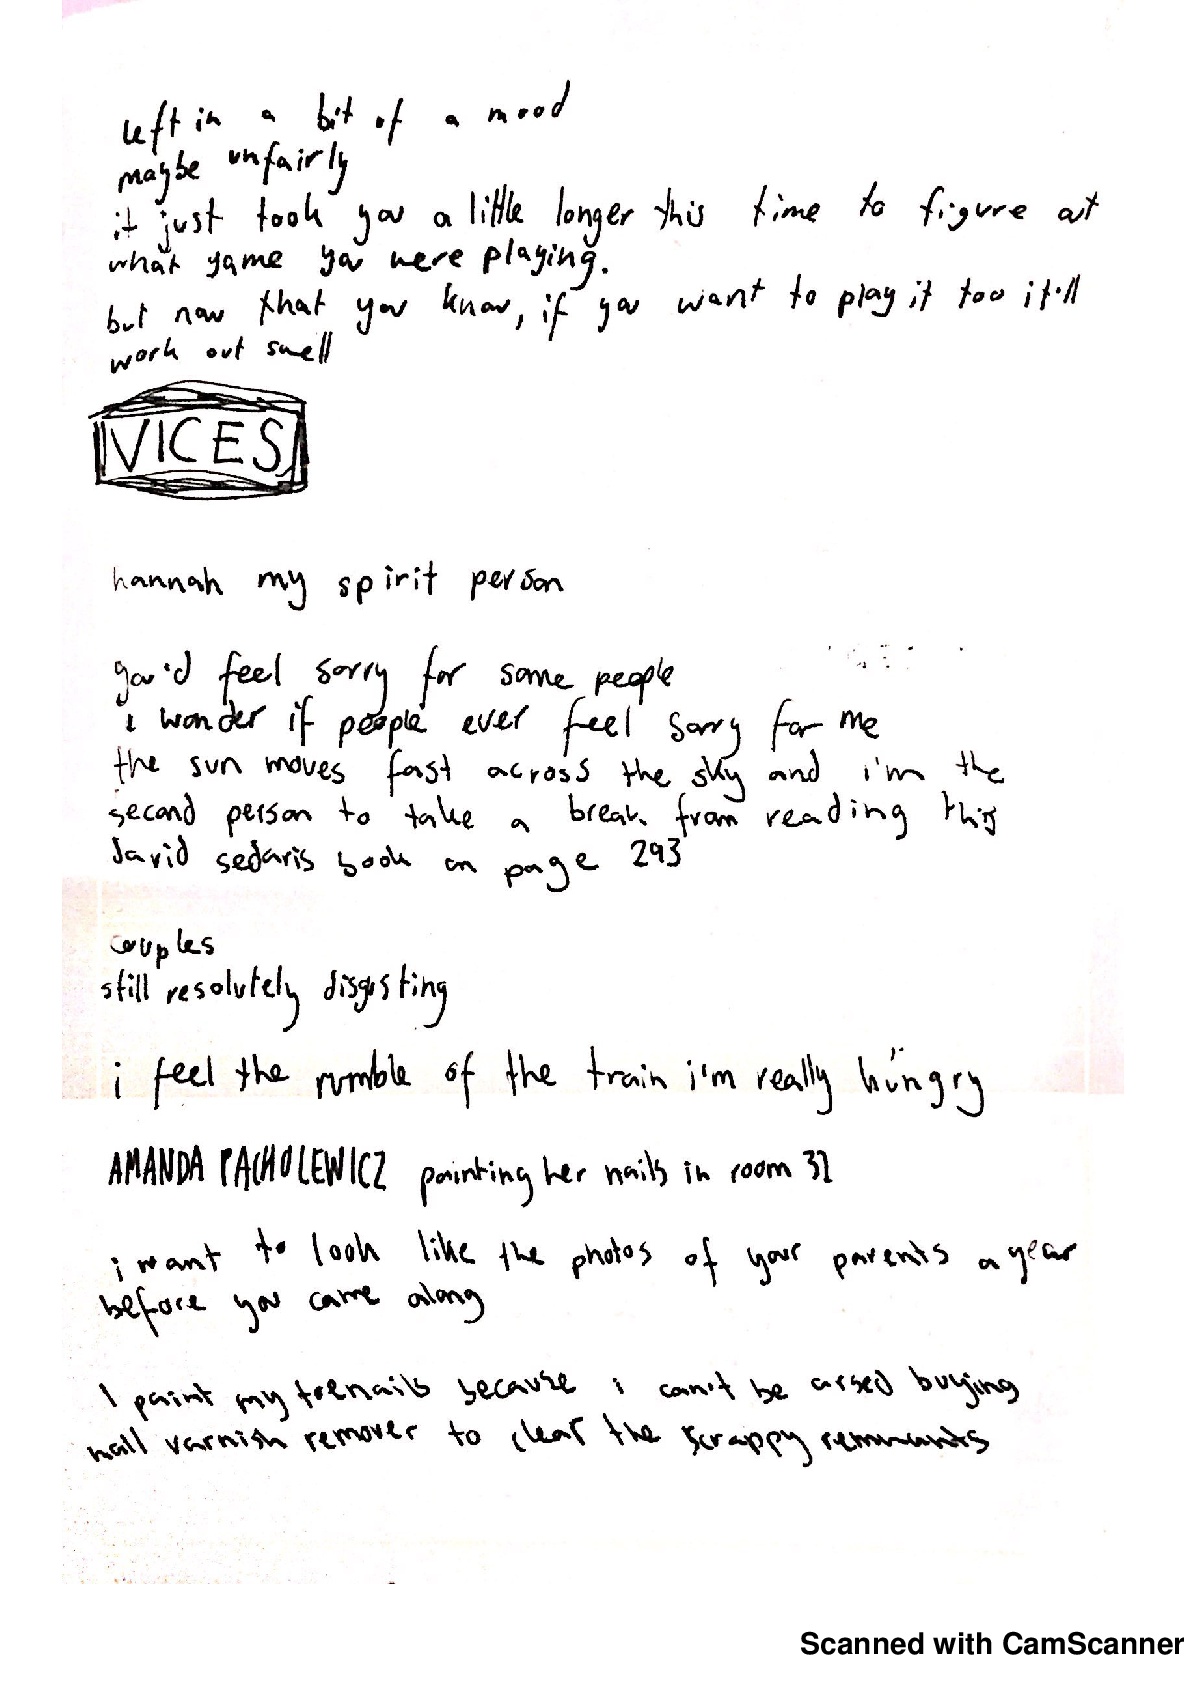 left in a bit of a mood
maybe unfairly
it just took you a little longer this time to figure out
what game you were playing.
but now that you know, if you want to play it too it'll
work out swell
VICES
hannah my spirit person
you'd feel sorry for some people
i wonder if people ever feel sorry for me
the sun moves fast across the sky and i'm the
second person to take a break from reading this
david sedaris book on page 293
couples
still resolutely disgusting
i feel the rumble of the train i'm really hungry
AMANDA PACHOLEWICZ painting her nails in room 32
i want to look like the photos of your parents a year
before you came along
I paint my toenails because i can't be arsed buying
nail varnish remover to clear the scrappy remnants
Scanned with CamScanner